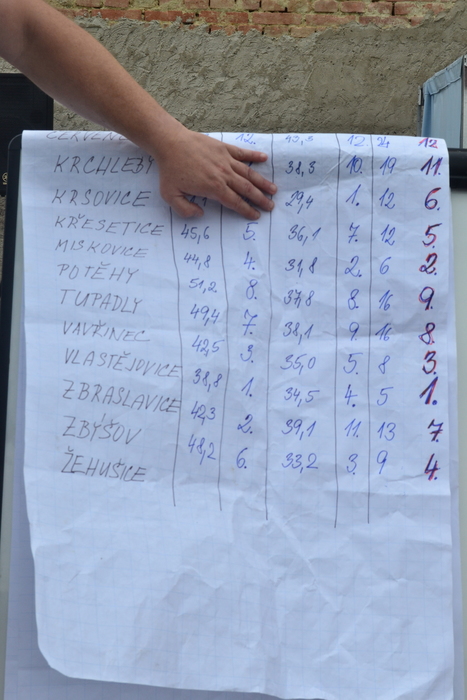 12. 43,5 12. 24 12
KRCHLEBY 38,3 10. 19 11.
KRSOVICE 29,4 1. 12 6.
KŘESETICE 45,6 5. 36,1 7. 12 5.
MISKOVICE 44,8 4. 31,8 2. 6 2.
POTĚHY 51,2 8. 37,8 8. 16 9.
TUPADLY 49,4 7. 38,1 9. 16 8.
VAVŘINEC 42,5 3. 35,0 5. 8 3.
VLASTĚJOVICE 38,8 1. 34,5 4. 5 1.
ZBRASLAVICE 42,3 2. 39,1 11. 13 7.
ZBÝŠOV 48,2 6. 33,2 3. 9 4.
ŽEHUŠICE